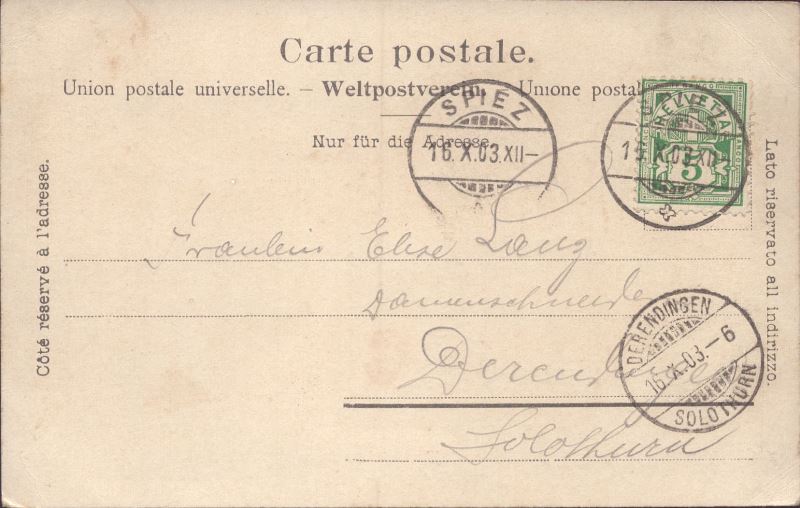 Carte postale.
Union postale universelle. – Weltpostverein. – Unione postal
Nur für die Adresse.
Côté réservé à l'adresse.
Lato riservato all indirizzo.
SPIEZ
16.X.03.XII–
HELVETIA
5
X.03.XII
Fräulein Elise Lanz
Damenschneide
Derendingen
Solothurn
DERENDINGEN
16.X.03.–6
SOLOTHURN